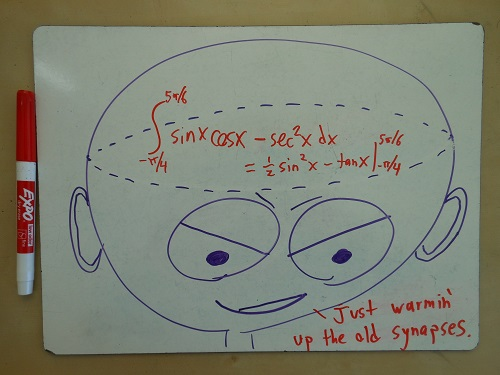 5π/6
∫ sinx cosx − sec²x dx
−π/4
= ½ sin²x − tanx |5π/6 −π/4
Just warmin'
up the old synapses.
EXPO